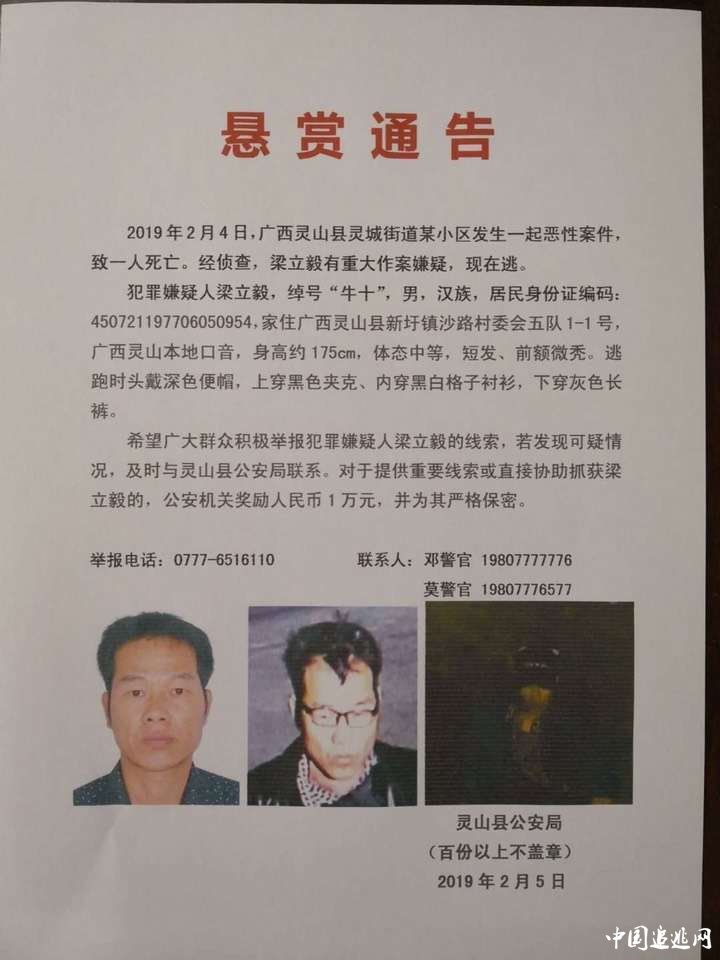 悬赏通告
2019年2月4日，广西灵山县灵城街道某小区发生一起恶性案件，
致一人死亡。经侦查，梁立毅有重大作案嫌疑，现在逃。
犯罪嫌疑人梁立毅，绰号“牛十”，男，汉族，居民身份证编码：
450721197706050954，家住广西灵山县新圩镇沙路村委会五队1-1号，
广西灵山本地口音，身高约175cm，体态中等，短发、前额微秃。逃
跑时头戴深色便帽，上穿黑色夹克、内穿黑白格子衬衫，下穿灰色长
裤。
希望广大群众积极举报犯罪嫌疑人梁立毅的线索，若发现可疑情
况，及时与灵山县公安局联系。对于提供重要线索或直接协助抓获梁
立毅的，公安机关奖励人民币1万元，并为其严格保密。
举报电话：0777-6516110 联系人：邓警官 19807777776
莫警官 19807776577
灵山县公安局
（百份以上不盖章）
2019年2月5日
中国追逃网